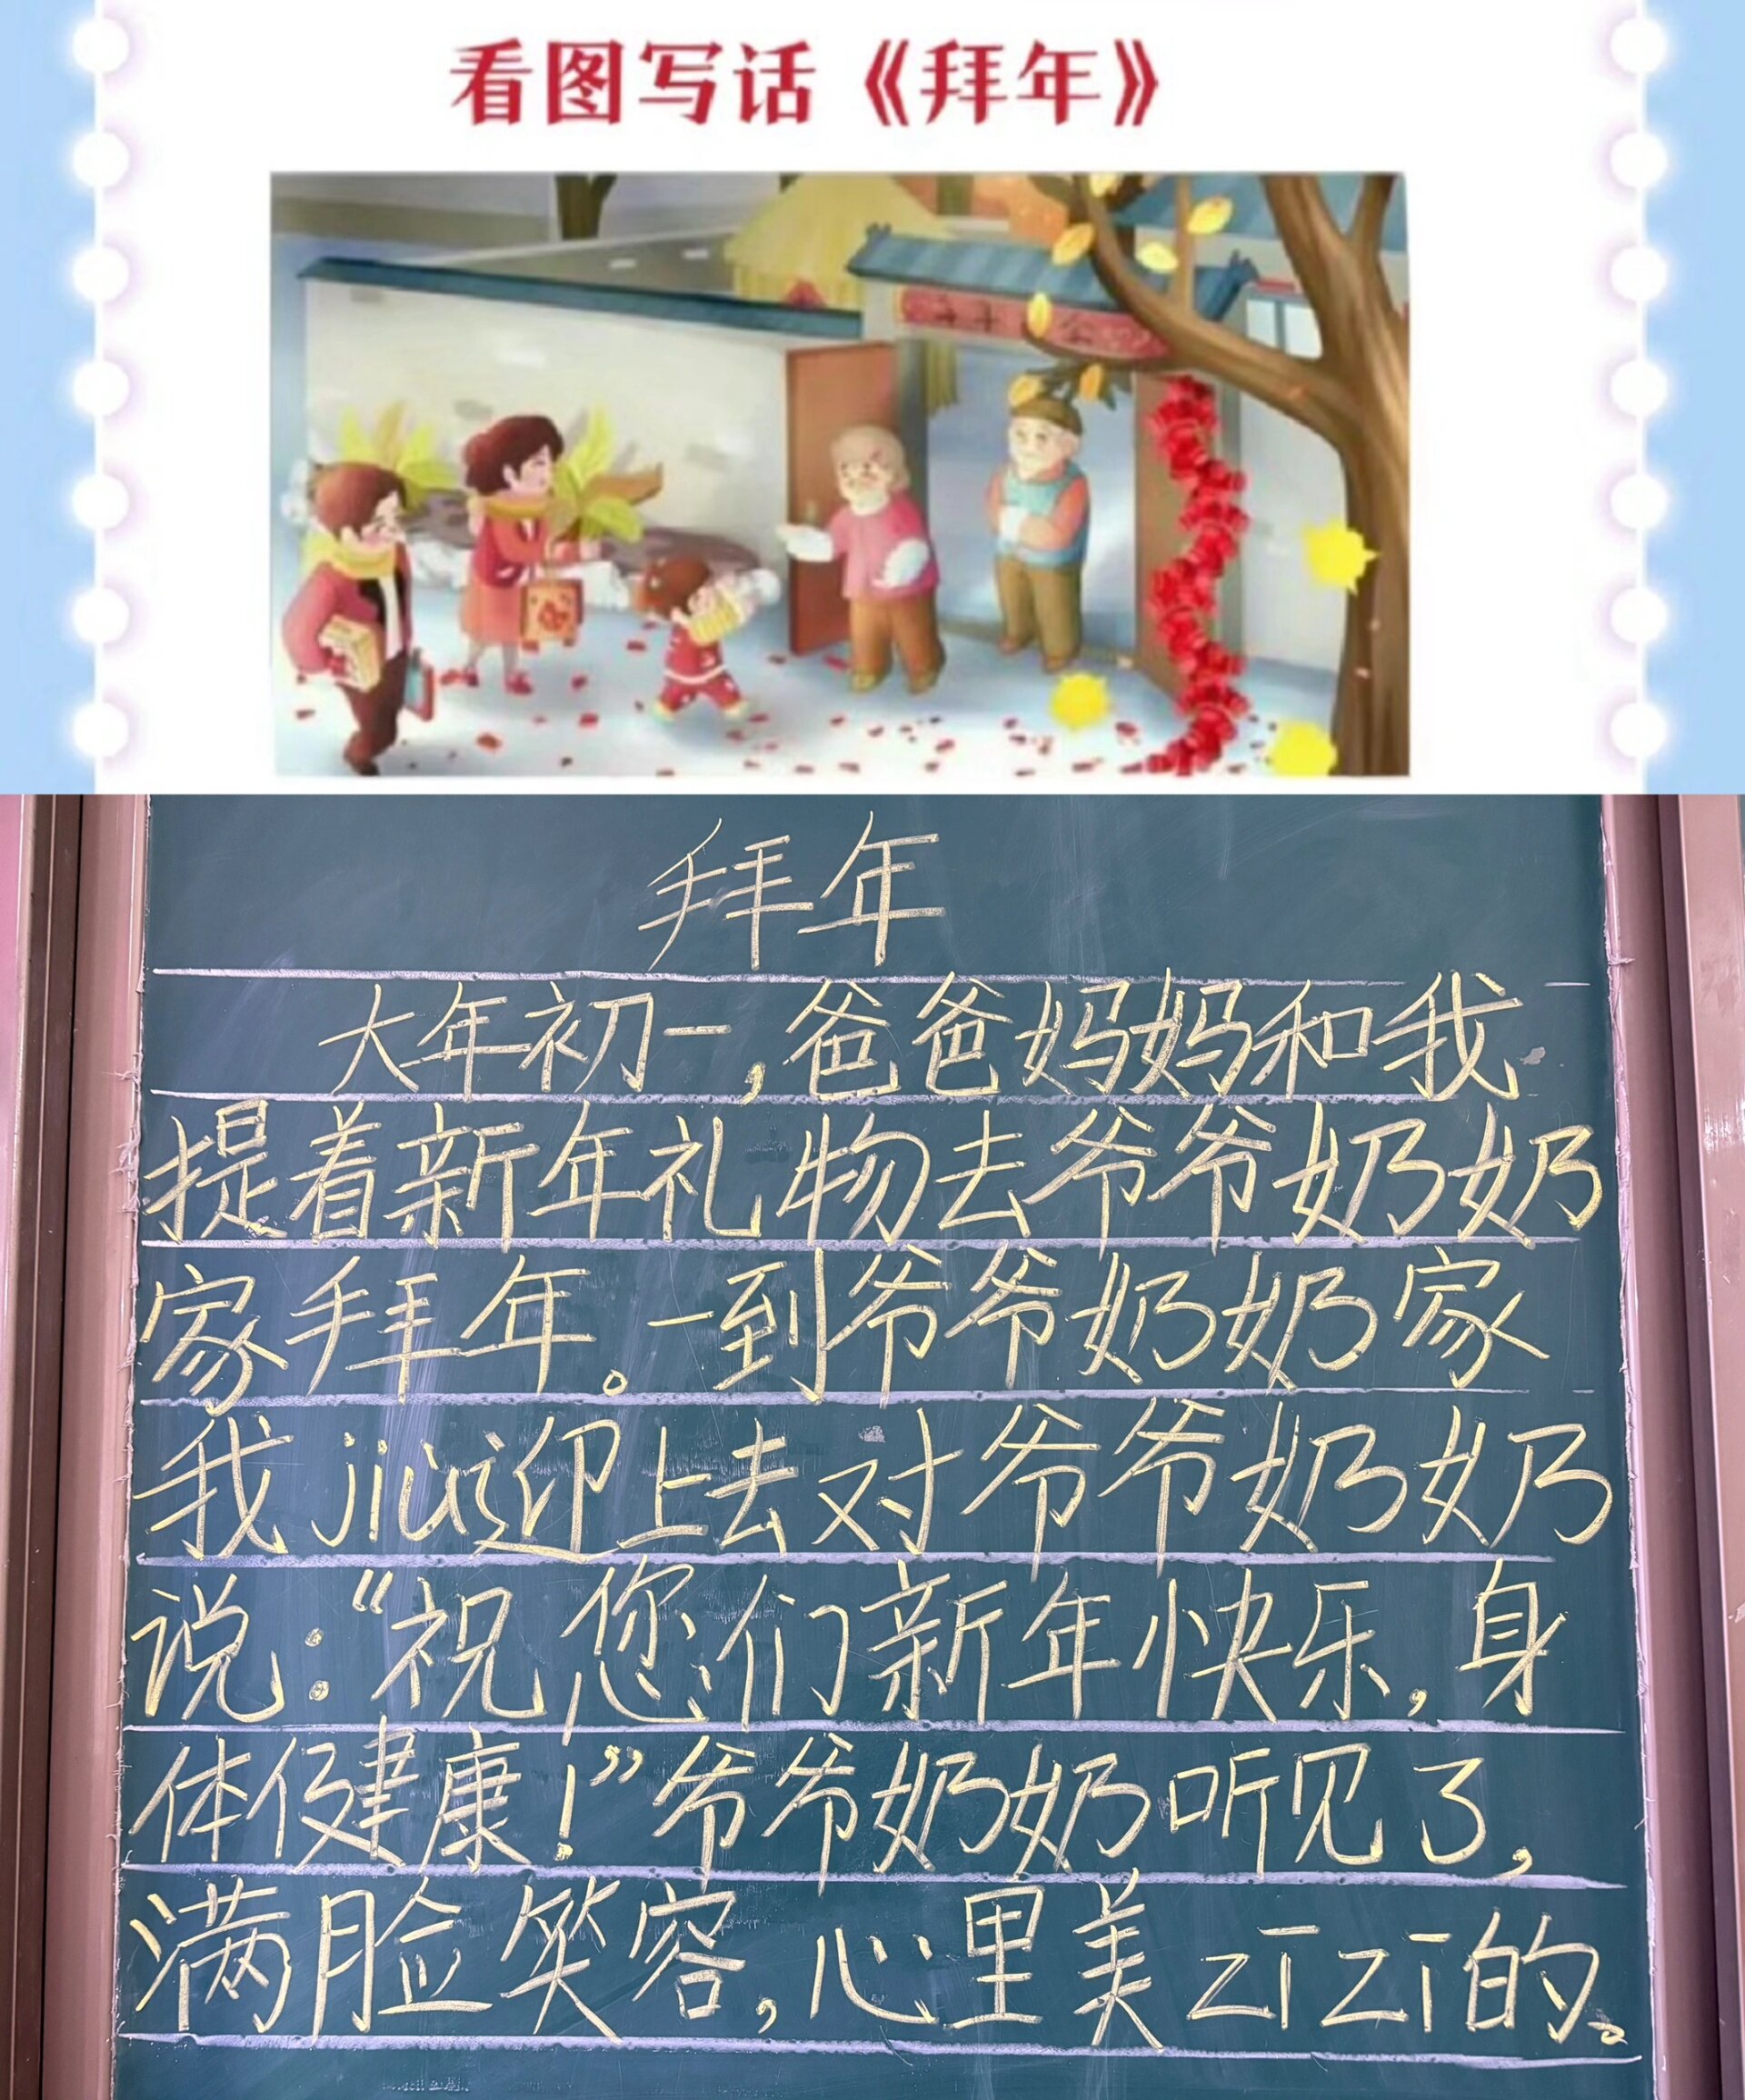 看图写话《拜年》
拜年
大年初一,爸爸妈妈和我
提着新年礼物去爷爷奶奶
家拜年。一到爷爷奶奶家
我jiù迎上去对爷爷奶奶
说:“祝您们新年快乐,身
体健康!”爷爷奶奶听见了,
满脸笑容,心里美zīzī的。